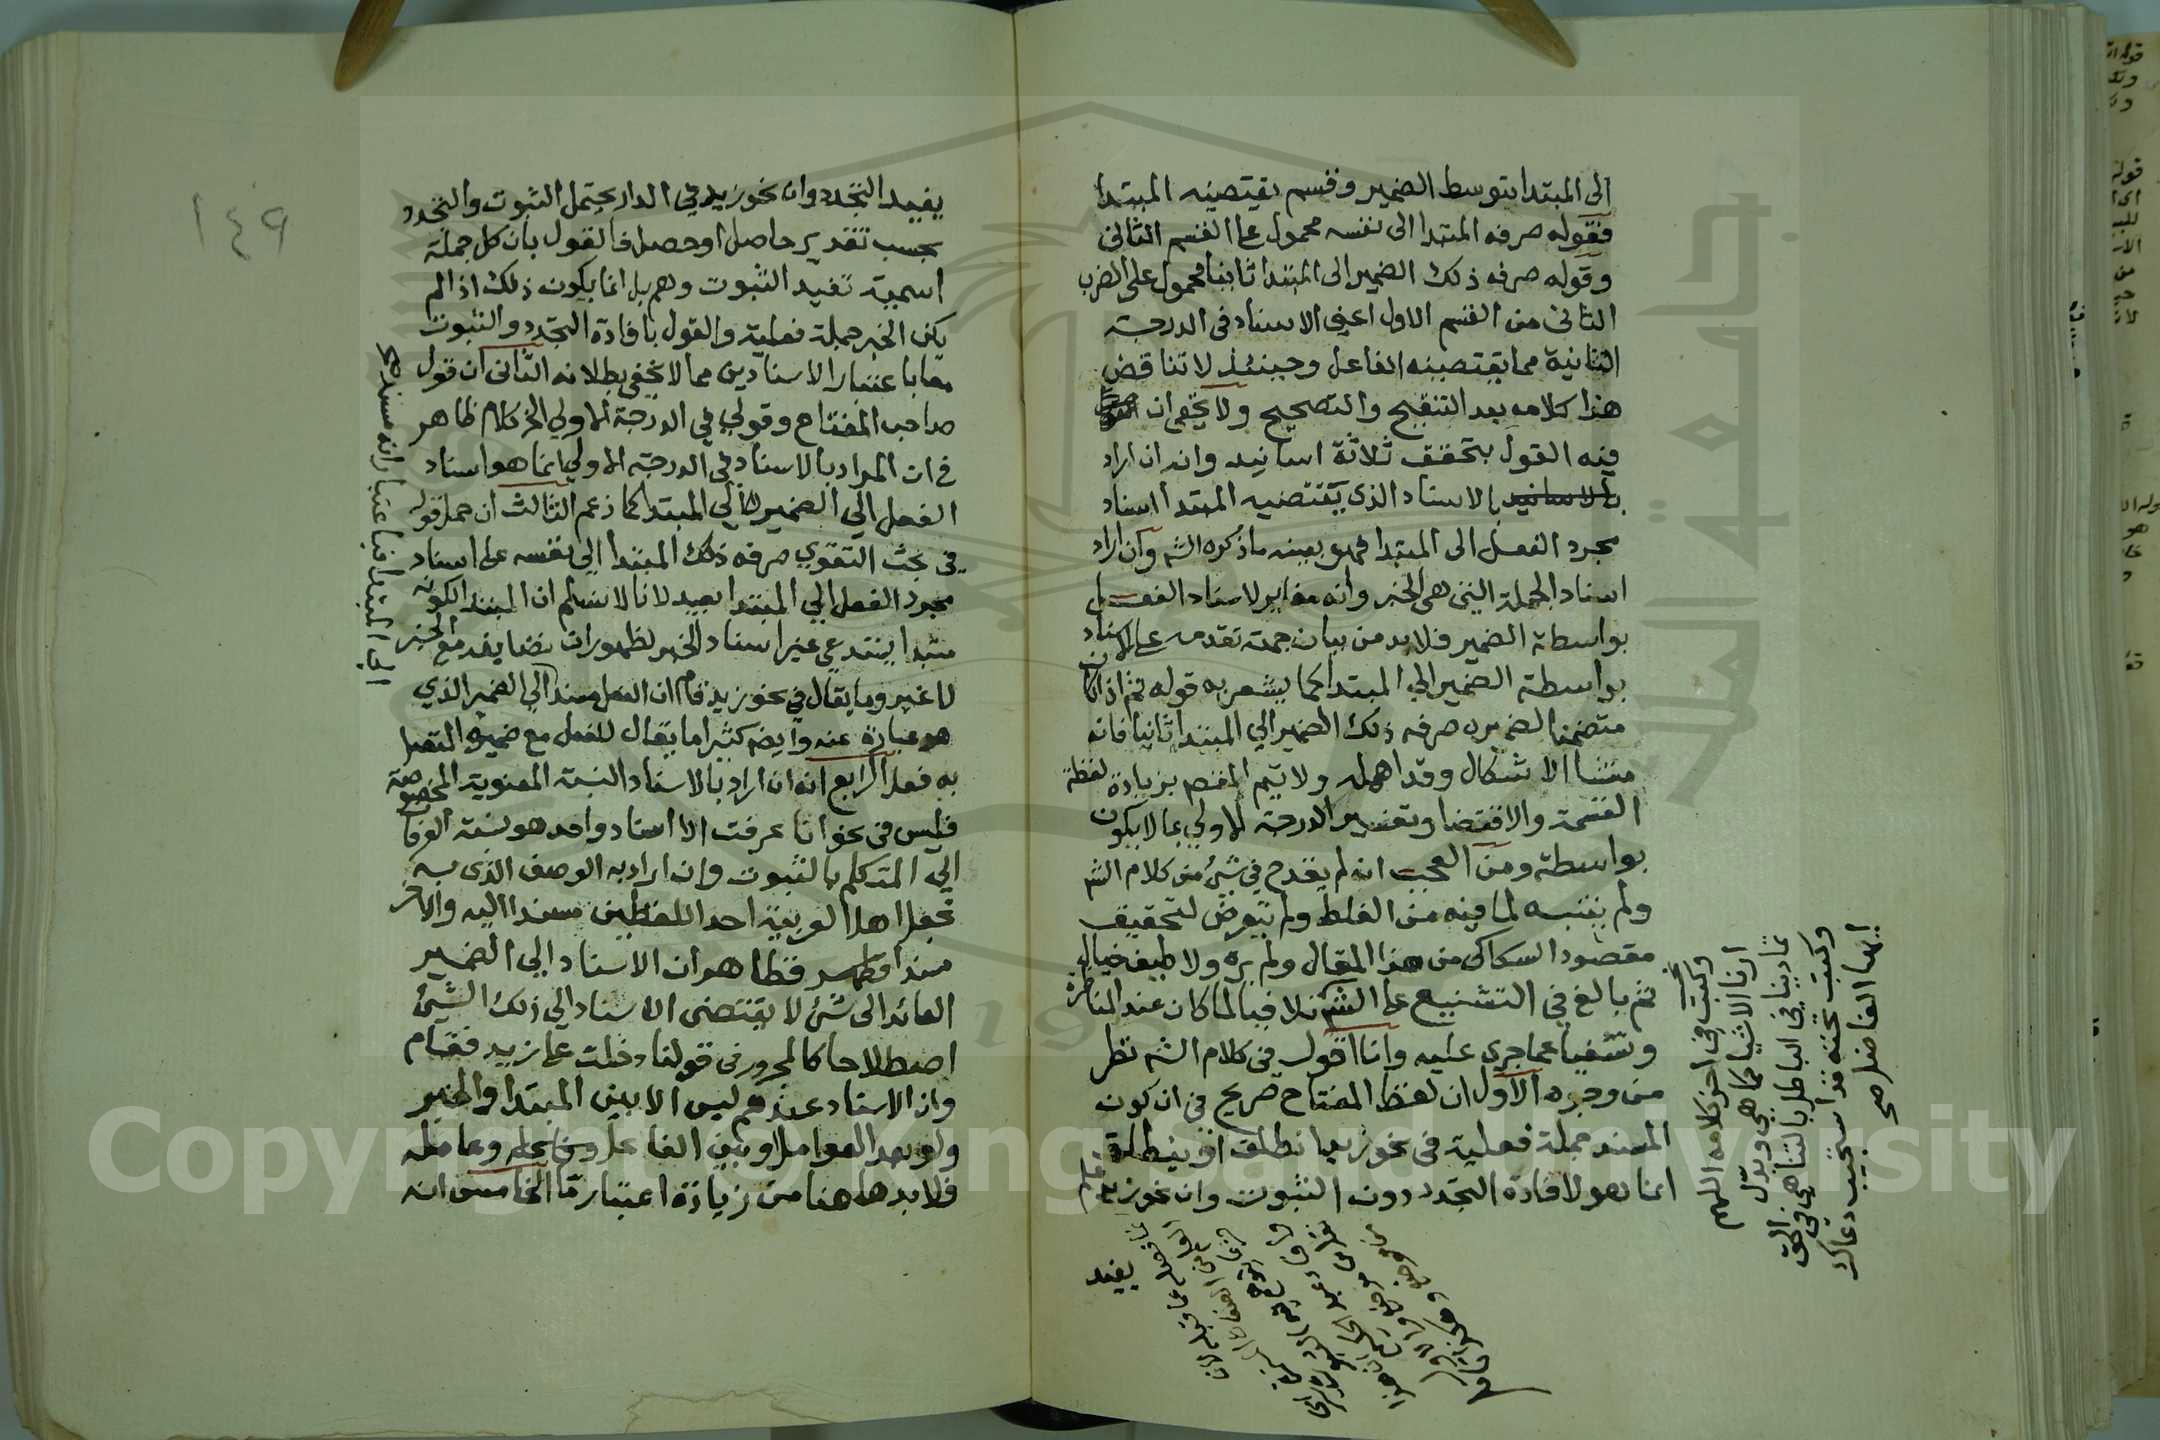 الى المبتدا بتوسط الضمير وقسم يقتضيه المبتدا
فقوله صرفه المبتدا الى نفسه محمول على القسم الثانى
وقوله صرفه ذلك الضمير الى المبتدا ثانيا محمول على الضرب
الثانى من القسم الاول اعنى الاسناد فى الدرجة
الثانية مما يقتضيه الفاعل وحينئذ لا تناقض
هذا كلامه بعد التنقيح والتصحيح ولا يخفى ان
فيه القول بتحقق ثلاثة اسانيد وانه ان اراد
بالاسناد الذى يقتضيه المبتدا اسناد
مجرد الفعل الى المبتدا فهو بعينه ما ذكره الشه وان اراد
اسناد الجملة التى هى الخبر وانه مغاير لاسناد الفعل
بواسطة الضمير فلا بد من بيان جهة تقدمه على الاسناد
بواسطة الضمير الي المبتدا كما يشعر به قوله ثم اذا كان
متضمنا لضميره صرفه ذلك الضمير الي المبتدا ثانيا فانه
منشا الاشكال وقد اهمله ولا يتم المقصم بزيادة لفظة
القسمة والاقتضا وتفسير الدرجة الاولي بما لا يكون
بواسطة ومن العجب انه لم يقدح في شئ من كلام الشه
ولم يتنبه لما فيه من الغلط ولم يتعرض لتحقيق
مقصود السكاكى من هذا المقال ولم يره ولا طيف خياله
ثم بالغ في التشنيع على الشه تلافيا لما كان عند المناظرة
وتشفيا عما جري عليه وانا اقول فى كلام الشه نظر
من وجوه الاول ان لفظ المفتاح صريح في ان كون
المسند جملة فعلية فى نحو زيد انطلق او ينطلق
انما هو لافادة التجدد دون الثبوت وان نحو زيد علم
يفيد
وكتب في اخر كلامه اللهم
ارنا الاشيا كما هي ونزل
عما دينا في الباطل بالتناهي في الحق
وكتب تحته قد استجيب دعاك
ايها الفاضل صح
١٤٩
يفيد التجدد وان نحو زيد في الدار يحتمل الثبوت والتجدد
بحسب تقدير حاصل او حصل فالقول بان كل جملة
اسمية تفيد الثبوت وهم بل انما يكون ذلك اذا لم
يكن الخبر جملة فعلية والقول بافادة التجدد والثبوت
معا باعتبار الاسنادين مما لا يخفى بطلانه الثانى ان قول
صاحب المفتاح وقولي في الدرجة الاولي الخ كلام ظاهر
في ان المراد بالاسناد في الدرجة الاولي انما هو اسناد
الفعل الي الضمير لا الي المبتدا كما زعم الثالث ان حمل قوله
في بحث التقوي صرفه ذلك المبتدا الي نفسه على اسناد
مجرد الفعل الي المبتدا بعيد لانا لا نسلم ان المبتدا لكونه
مبتدا يستدعي غير اسناد الخبر لظهور ان تضايفه مع الخبر
لا غير وما يقال في نحو زيد قام ان الفعل مسند الي الضمير الذي
هو عبارة عنه وايضه كثيرا ما يقال للفعل مع ضميره المتصل
به فعل الرابع انه ان اراد بالاسناد النسبة المعنوية المخصوصة
فليس فى نحو انا عرفت الا اسناد واحد هو نسبة العرفان
الي المتكلم بالثبوت وان اراد به الوصف الذى به
يجعل اهل العربية احد اللفظين مسندا اليه والاخر
مسندا فظاهر ان الاسناد الي الضمير
العائد الى شئ لا يقتضى الاسناد الي ذلك الشئ
اصطلاحا كالمجرور فى قولنا دخلت على زيد فقام
وان الاسناد عندهم ليس الا بين المبتدا والخبر
ولو بعد العوامل او بين الفاعل وعامله
فلا بد هاهنا من زيادة اعتبار قا الخامس انه
الى المبتدا فباعتبار انه مسند صح
Copyright © King Saud University
جامعة الملك سعود